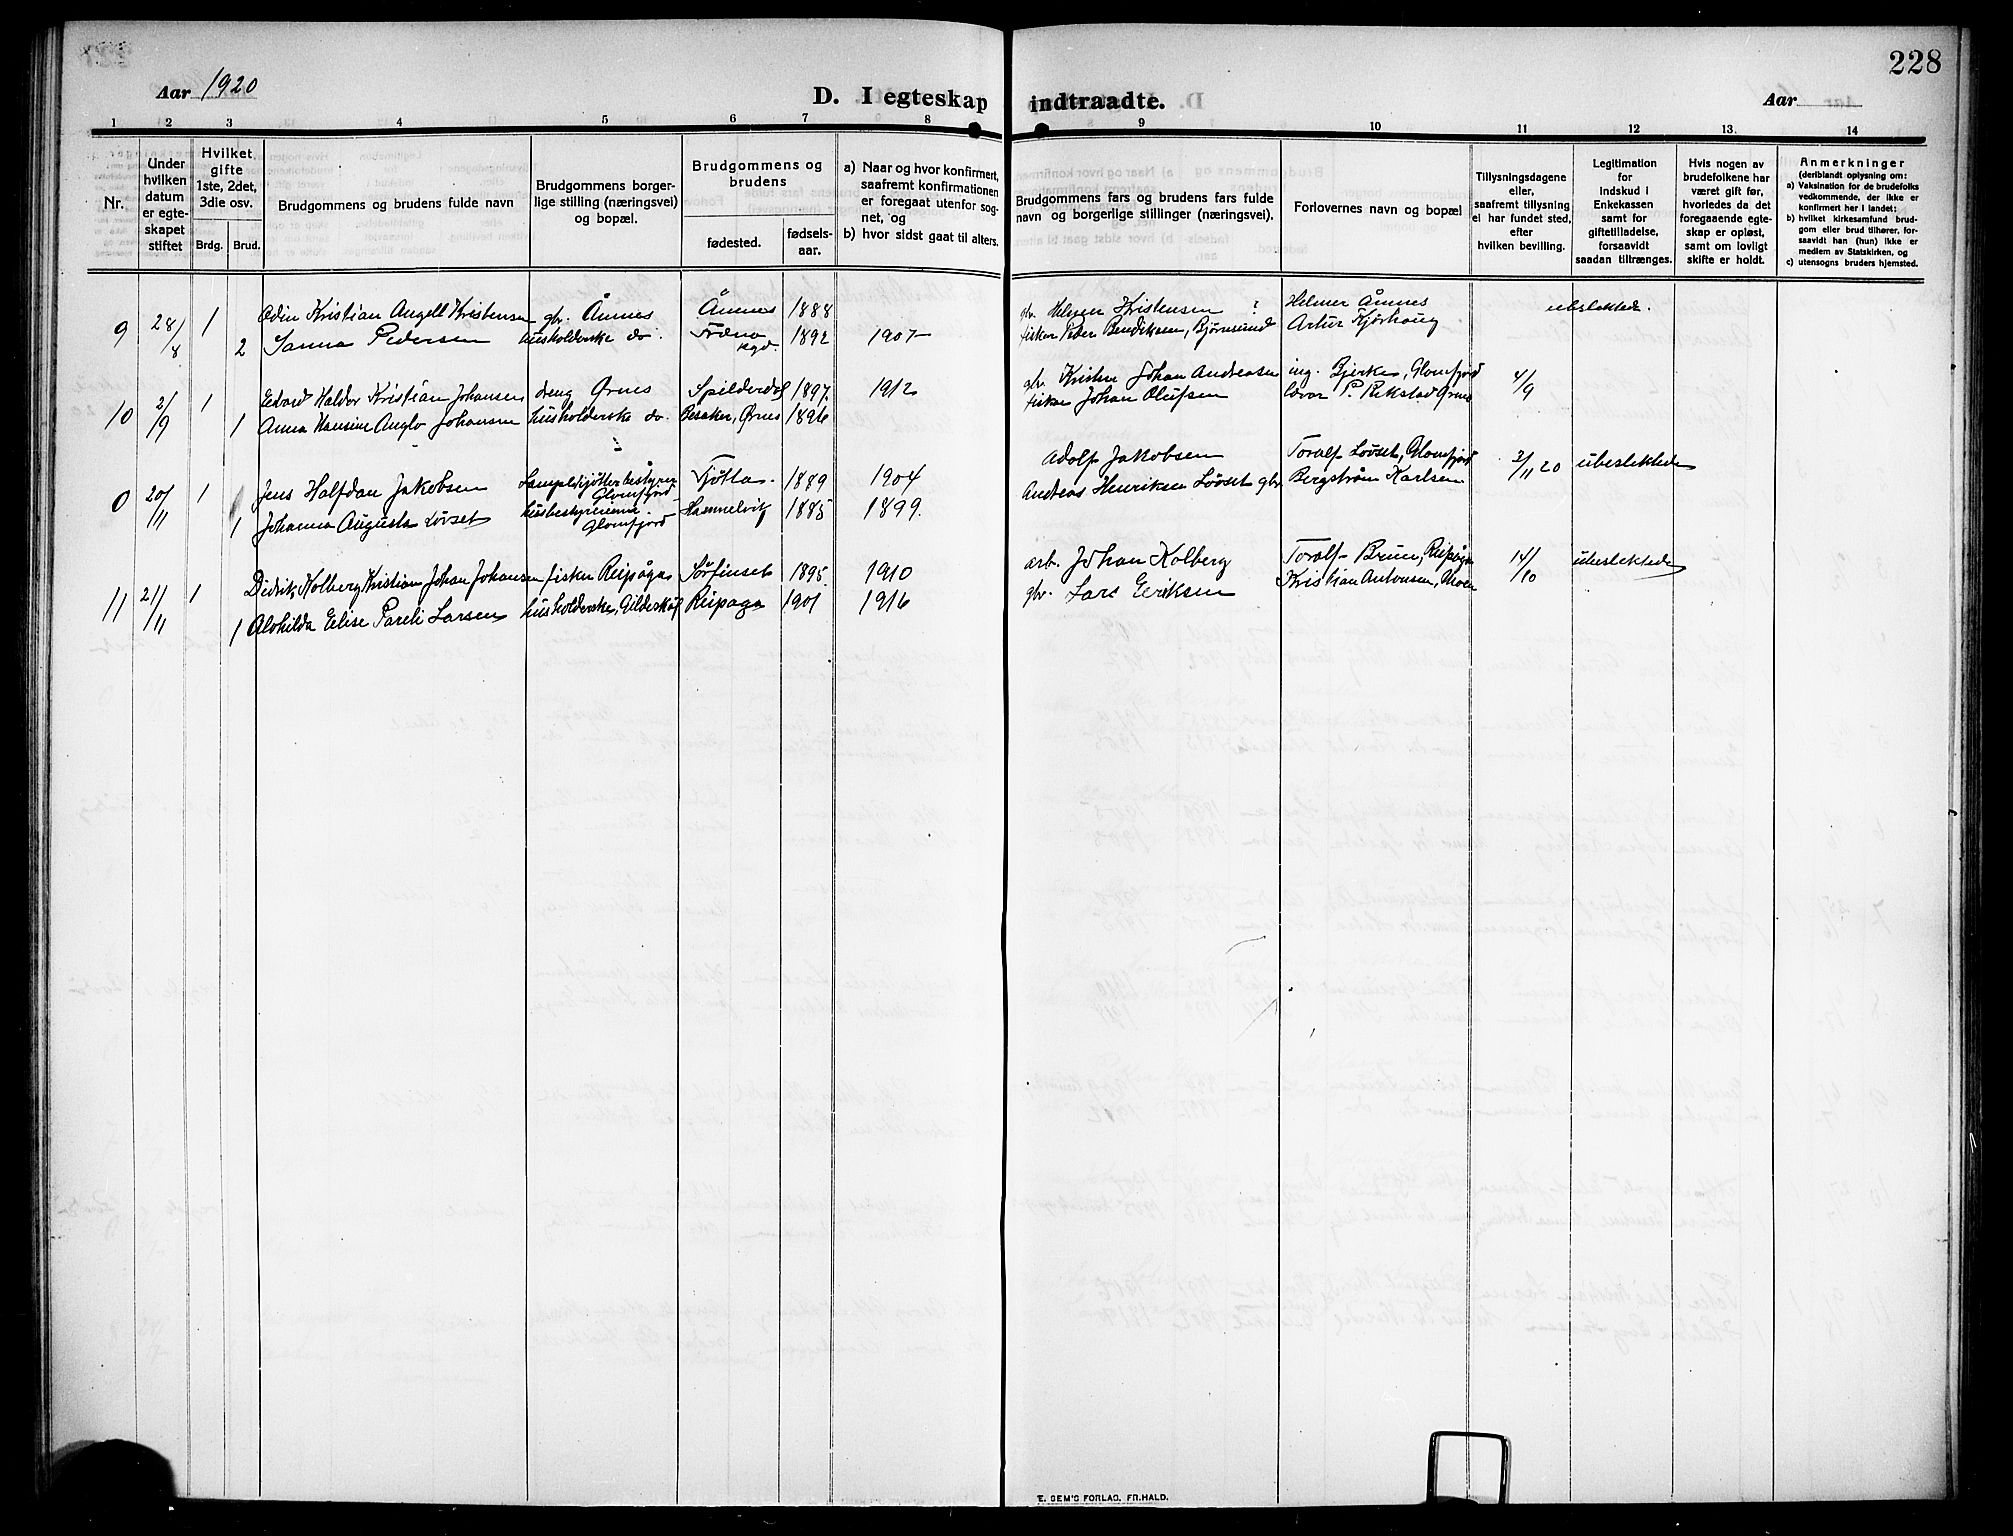 228
Aar 1920
D. I egteskap indtraadte.
Aar
1 2 3 4 5 6 7 8 9 10 11 12 13. 14
Nr.
Under hvilken datum er egteskapet stiftet
Hvilket gifte 1ste, 2det, 3die osv.
Brdg. Brud.
Brudgommens og brudens fulde navn
Brudgommens borgerlige stilling (næringsvei) og bopæl.
Brudgommens og brudens
fødested. fødselsaar.
a) Naar og hvor konfirmert, saafremt konfirmationen er foregaat utenfor sognet, og
b) hvor sidst gaat til alters.
Brudgommens fars og brudens fars fulde navn og borgerlige stillinger (næringsvei).
Forlovernes navn og bopæl
Tillysningsdagene eller, saafremt tillysning ei har fundet sted, efter hvilken bevilling.
Legitimation for Indskud i Enkekassen samt for giftetilladelse, forsaavidt saadan tiltrænges.
Hvis nogen av brudefolkene har været gift før, hvorledes da det foregaaende egteskap er opløst, samt om lovligt skifte er holdt.
Anmerkninger (deriblandt oplysning om:
a) Vaksination for de brudefolks vedkommende, der ikke er konfirmert her i landet;
b) hvilket kirkesamfund brudgom eller brud tilhører, forsaavidt han (hun) ikke er medlem av Statskirken, og
c) utensogns bruders hjemsted.
9 28/8 1 Odin Kristian Angell Kristensen gbr. Åmnes Åmnes 1888 gbr. Helger Kristensen ? Helmer Åmnes ubeslektede.
2 Sanna Pedersen husholderske do. Træna 1892 1907 fisker Peter Bendiksen, Bjørnsund Artur Kjørhaug
10 2/9 1 Edvard Haldor Kristian Johansen dreng Ørnes Spilderdal 1897. 1912 gbr. Johan Andreasen ing. Bjerke, Glomfjord 4/9
1 Anna Hansine Anglo Johansen husholderske do. Besaker, Ørnes 1896 fisker Johan Olufsen P. Rekstad Ørnes
0 20/11 1 Jens Halfdan Jakobsen Glomfjord Tjøtta. 1889 1904 Adolf Jakobsen Toralf Løvset, Glomfjord 2/11 20 ubeslektede
1 Johanna Augusta Løvset husbestyrerinne. Glomfjord Hammelvik 1885 1899. Andreas Henriksen Løvset gbr. Bergstrøm Karlsen
11 21/11 1 Didrik Kolberg Kristian Johan Johansen fisker Reipåga Sørfinset 1895. 1910 arb. Johan Kolberg Toralf Bruun, Reipåga 14/10 ubeslektede
1 Alvhilda Elise Pareli Larsen husholderske, Gildeskål Reipaga 1901 1916 gbr. Lars Eriksen Kristian Antonsen, Moen
E. SEM'S FORLAG, FR.HALD.